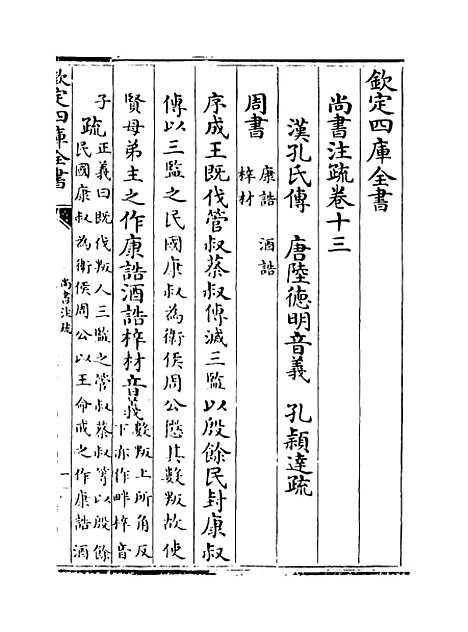 欽定四庫全書
尚書注疏卷十三
漢孔氏傳 唐陸德明音義 孔穎達疏
周書 康誥 酒誥
梓材
序成王既伐管叔蔡叔傳滅三監以殷餘民封康叔
傳以三監之民國康叔為衛侯周公懲其數叛故使
賢母弟主之作康誥酒誥梓材音義數叛上所角反
下亦作畔梓音
子疏正義曰既伐叛人三監之管叔蔡叔等以殷餘
民國康叔為衛侯周公以王命戒之作康誥酒
欽定四庫全書
尚書注疏
一